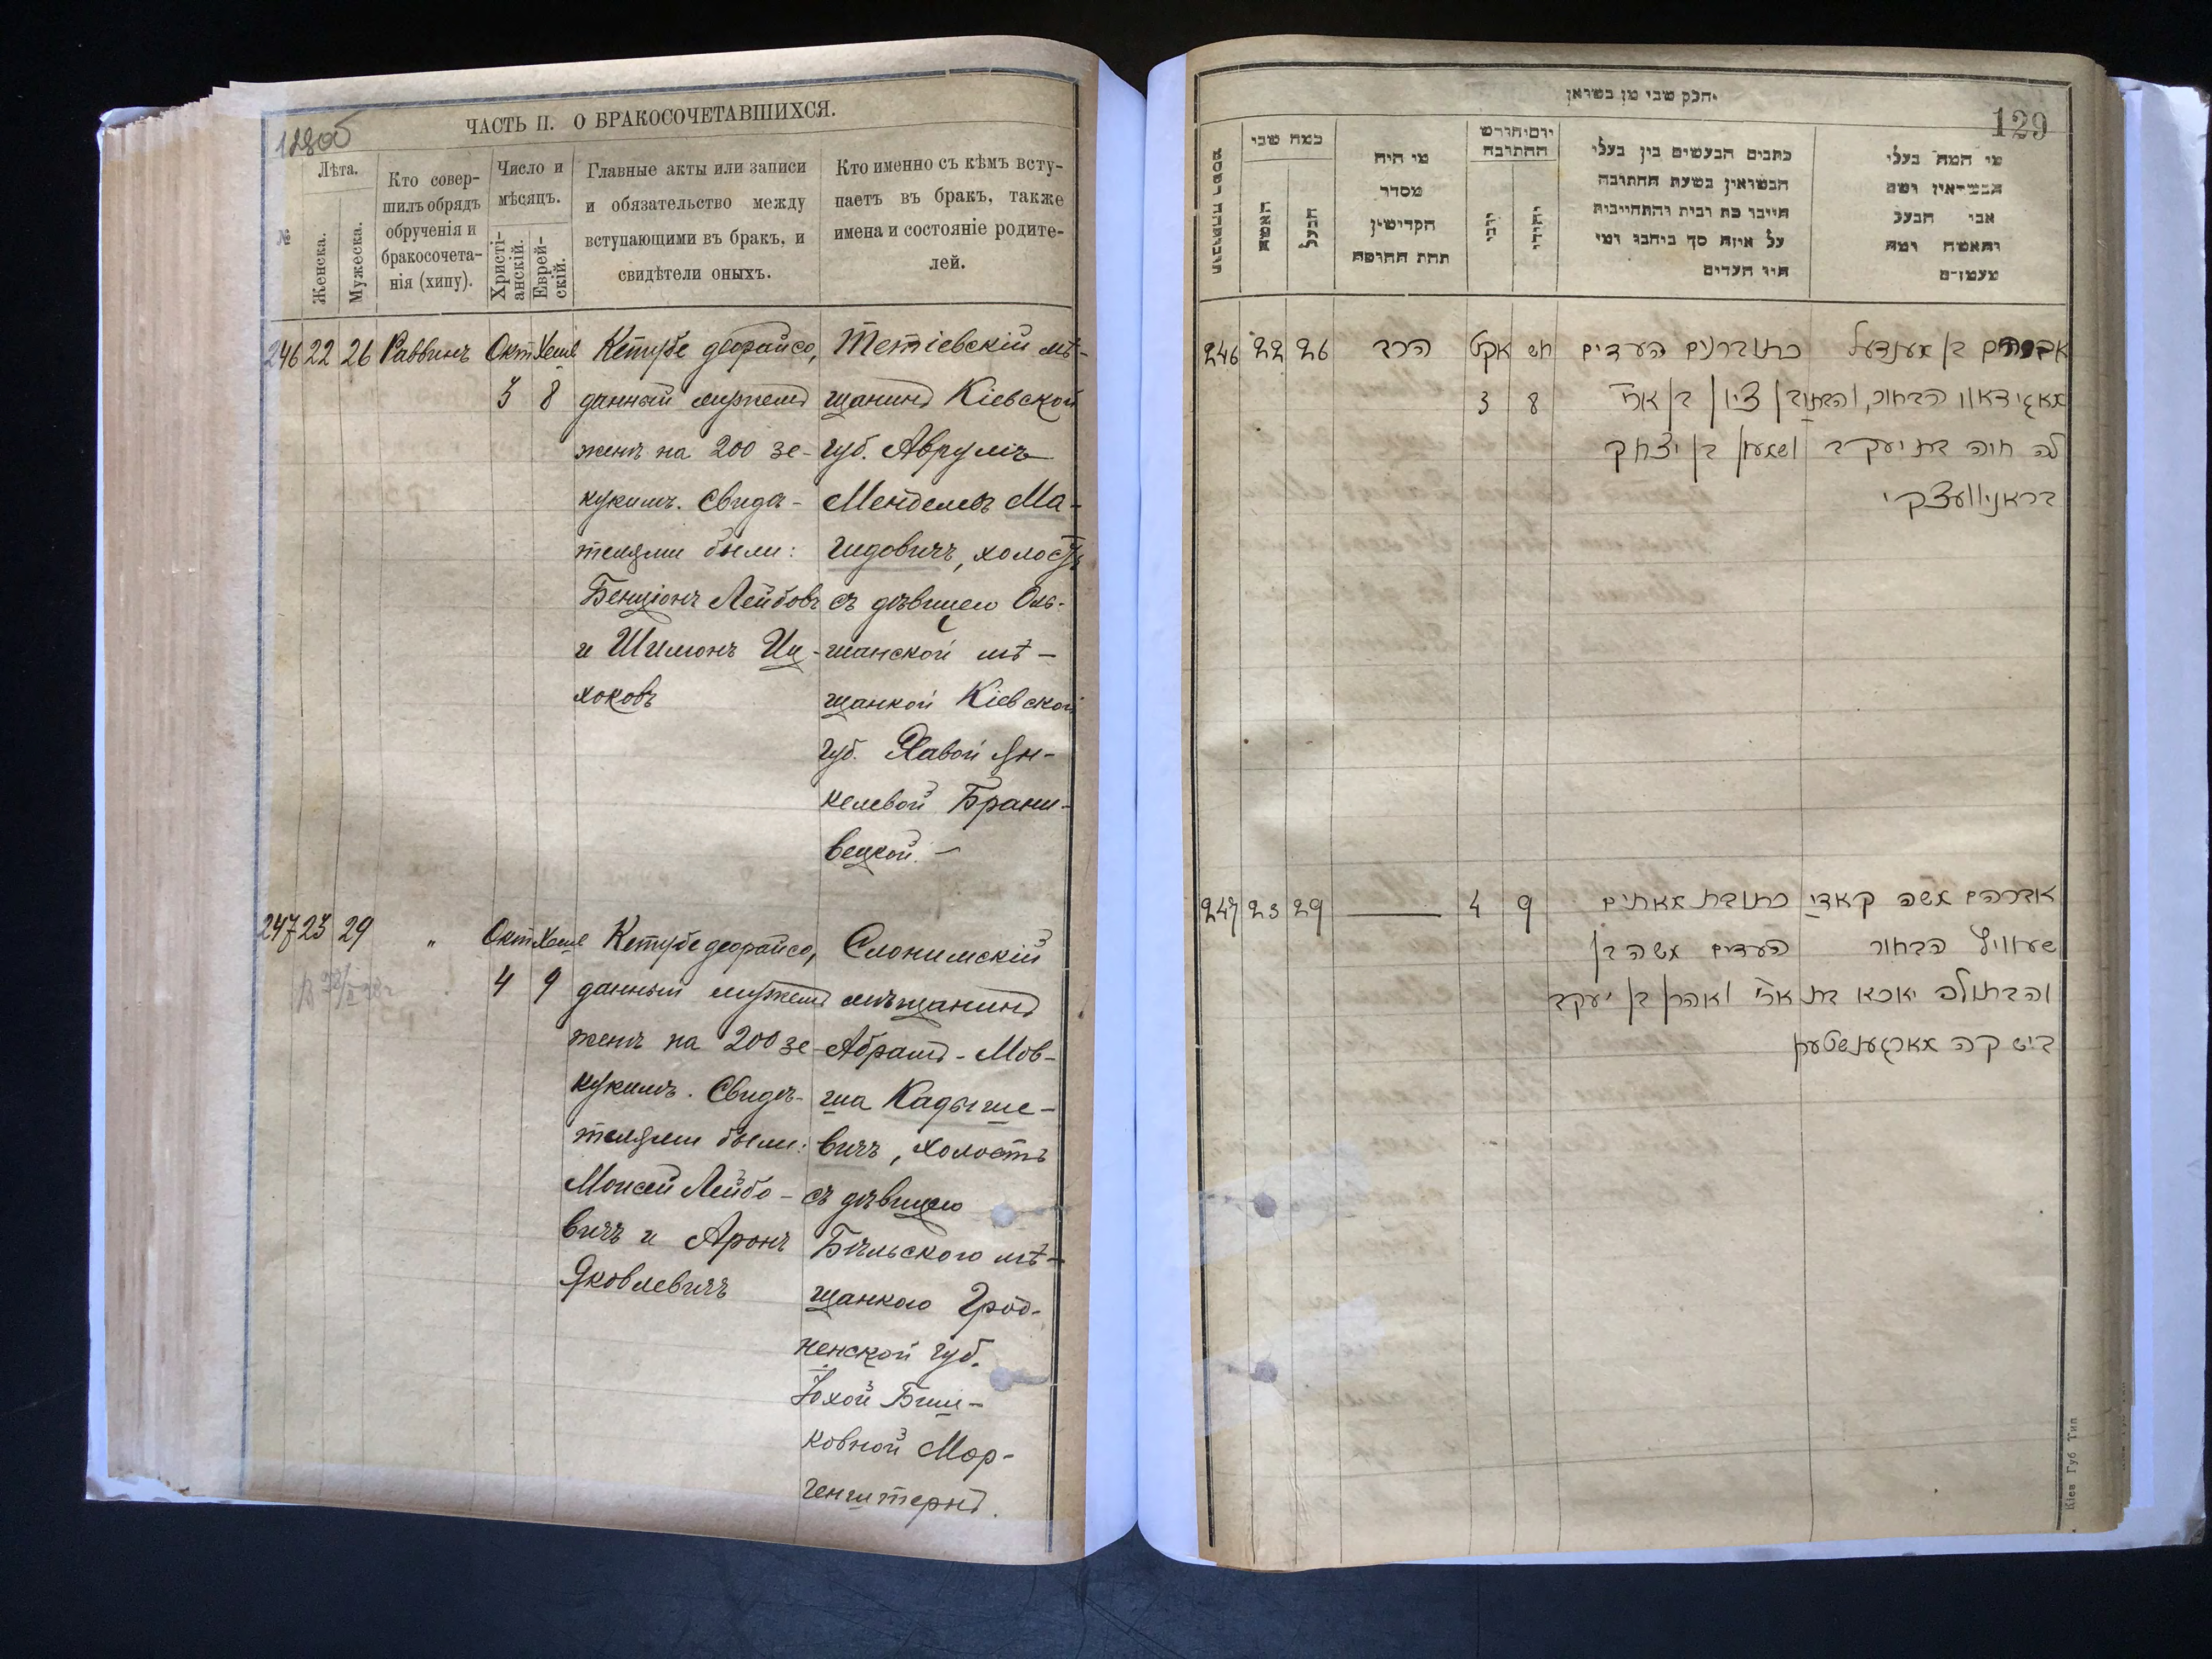 128об
ЧАСТЬ II. О БРАКОСОЧЕТАВШИХСЯ.
№
Лѣта.
Женска.
Мужеска.
Кто совер-
шилъ обрядъ
обрученія и
бракосочета-
нія (хипу).
Число и
мѣсяцъ.
Христі-
анскій.
Еврей-
скій.
Главные акты или записи
и обязательство между
вступающими въ бракъ, и
свидѣтели оныхъ.
Кто именно съ кѣмъ всту-
паетъ въ бракъ, также
имена и состояніе родите-
лей.
246 22 26 Раввинъ Окт Хешв
3 8
Кетубе деорайсо,
данный мужемъ
женѣ на 200 зе-
кукимъ. Свидѣ-
телями были:
Бенціонъ Лейбовъ
и Шимонъ Иц-
хоковъ
Тетіевскій мѣ-
щанинъ Кіевской
губ. Аврумъ
Менделевъ Ма-
гидовичъ, холостъ
съ дѣвицею Оль-
шанской мѣ-
щанкой Кіевской
губ. Хавой Ян-
келевой Брани-
вецкой.
247 23 29 " Окт Хешв
4 9
Кетубе деорайсо,
данный мужемъ
женѣ на 200 зе-
кукимъ. Свидѣ-
телями были:
Моисей Лейбо-
вичъ и Аронъ
Яковлевичъ
Слонимскій
мѣщанинъ
Абрамъ-Мов-
ша Кадыше-
вичъ, холостъ
съ дѣвицею
Бѣльскою мѣ-
щанкою Грод-
ненской губ.
Юхой Биш-
ковной Мор-
генштернъ.
129
חלק שני מן נשואין
כמה שני
האשה
הבעל
מי היה
מסדר
הקדושין
תחת החופה
יום וחודש
החתונה
יהודי
כתבים הנעשים בין בעלי
הנשואין בשעת החתונה
חייבו כת רבית והתחייבות
על איזה סך ניתנו ומי
היו העדים
מי המה בעלי
אבי הבעל
והאשה ומה
מעמדם
246 22 26 הרב אקט חש
3 8
אברהם בן מענדעל
מאגידאוו הבחור, והבתו
לה חוה בת יעקב
בראניוועצקי
העדים
בן ציון בן ארי
ושמעון בן יצחק
247 23 29 — 4 9
אברהם משה קאדי
שעוויץ הבחור
והבתולה יוכא בת
ביש קה מארגענשטערן
כתובת מאתים
העדים משה בן
ארי ואהרן בן יעקב
Кіев Губ Тип